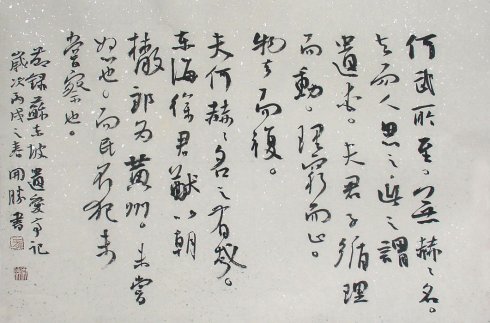 何武所至。無赫々名。
去而人思之此之謂
遺愛。夫君子循理
而動。理窮而止。
物去而復。
夫何赫々名之有哉。
東海徐君猷以朝
散郎為黃州。未嘗
怒也。而民不犯未
嘗察也。
節錄蘇東坡遺愛亭記
歲次丙戌之春開勝書